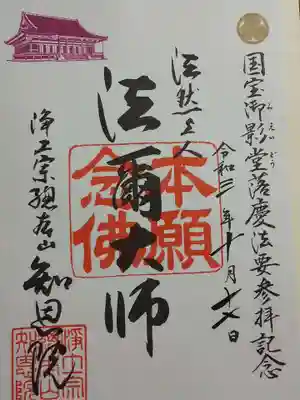 国宝御影堂落慶法要参拝記念
みえいどう
令和三年十月十七日
法然上人
法爾大師
本願念佛
浄土宗總本山知恩院